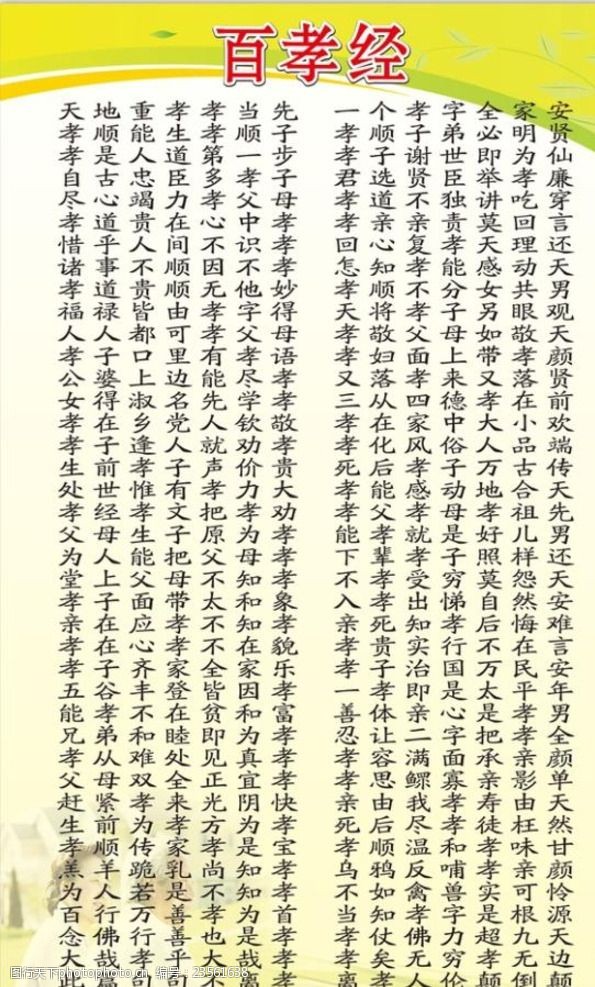 百孝经
天地重孝孝当先 一个孝字全家安
孝顺能生孝顺子 孝顺子弟必明贤
孝是人道第一步 孝子谢世即为仙
自古忠臣多孝子 君选贤臣举孝廉
尽心竭力孝父母 孝道不独讲吃穿
孝道贵在心中孝 孝亲亲责莫回言
惜乎人间不识孝 回心复孝天理还
诸事不顺因不孝 怎知孝能感动天
孝道贵顺无他妙 孝顺不分女共男
福禄皆由孝字得 天将孝子另眼观
人人都可孝父母 孝敬父母如敬天
孝子口里有孝语 孝妇面上带孝颜
公婆上边能尽孝 又落孝来又落贤
女得淑名先学孝 三从四德孝在前
孝在乡党人钦敬 孝在家中大小欢
孝子逢人就劝孝 孝化风俗人品端
生前孝子声价贵 死后孝子万古传
处世惟有孝力大 孝能感动地合天
孝经孝文把孝劝 孝父孝母孝祖先
父母生子原为孝 能孝就是好儿男
为人能把父母孝 下辈孝子照样还
堂上父母不知孝 不孝受穷莫怨天
孝子面带太和象 入孝出悌自然安
亲在应孝不知孝 亲死知孝后悔难
孝在心孝不在貌 孝贵实行不在言
孝子齐家全家乐 孝子治国万民安
五谷丰登皆因孝 一孝即是太平年
能孝不在贫和富 善体亲心是孝男
兄弟和睦即为孝 忍让二字把孝全
孝从难处见真孝 孝容满面承亲颜
父母双全正宜孝 孝思鳏寡亲影单
赶紧孝来光阴快 亲由我孝寿由天
生前为孝方为孝 死后尽孝徒枉然
孝顺传家孝是宝 孝顺温和孝味甘
羔羊跪乳尚知孝 乌鸦反哺孝亲颜
为人若是不知孝 不如禽兽实可怜
百行万善孝为首 当知孝字是根源
念佛行善也是孝 孝仗佛力超九天
大哉孝乎大哉孝 孝矣无穷孝无边
此篇句句不离孝 离孝人伦颠倒颠
图行天下 photophoto.cn 编号:23561638